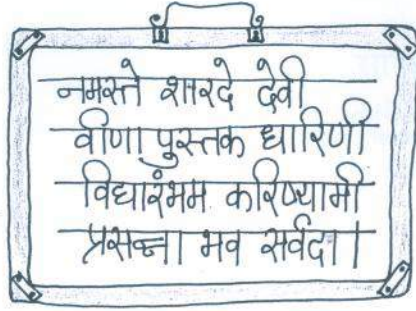 नमस्ते शारदे देवी
वीणा पुस्तक धारिणी
विद्यारंभम करिष्यामी
प्रसन्ना भव सर्वदा।